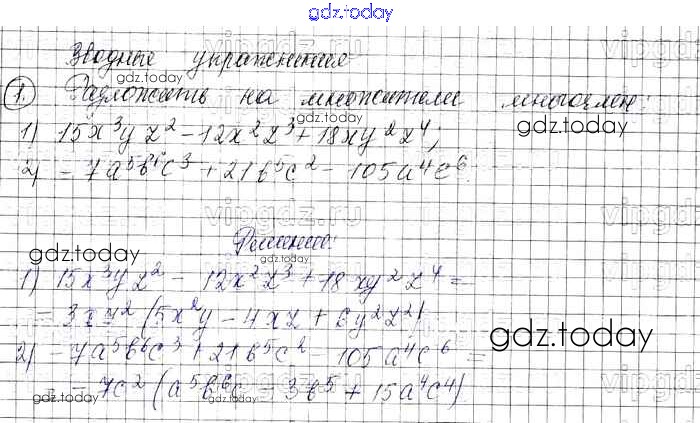 gdz.today
Вводные упражнения
gdz.today
1. Разложить на множители многочлен:
1) 15x³yz² - 12x²z³ + 18xy²z⁴;
gdz.today
2) - 7a⁵b⁶c³ + 21b⁵c² - 105a⁴c⁶.
vipgdz.ru
Решение:
gdz.today
1) 15x³yz² - 12x²z³ + 18xy²z⁴ =
= 3xz² (5x²y - 4xz + 6y²z²)
gdz.today
2) - 7a⁵b⁶c³ + 21b⁵c² - 105a⁴c⁶ =
= - 7c² (a⁵b⁶c - 3b⁵ + 15a⁴c⁴)
gdz.today